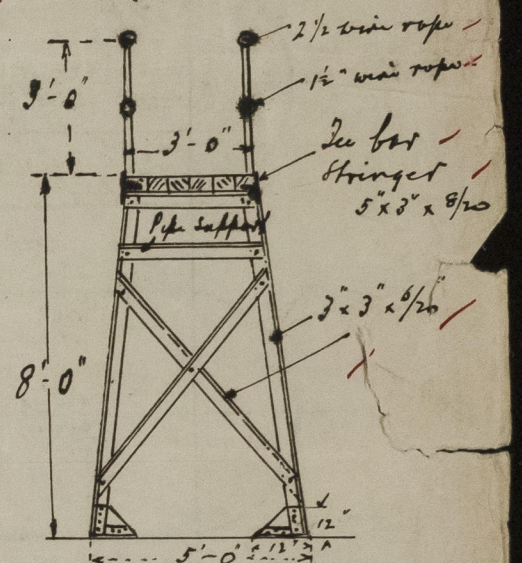 2 1/2 wire rope
1 1/2" wire rope
3'-0"
3'-0"
Tee bar
Stringer
5" x 3" x 8/20
Pipe support
3" x 3" x 6/20"
8'-0"
12"
5'-0"
12"